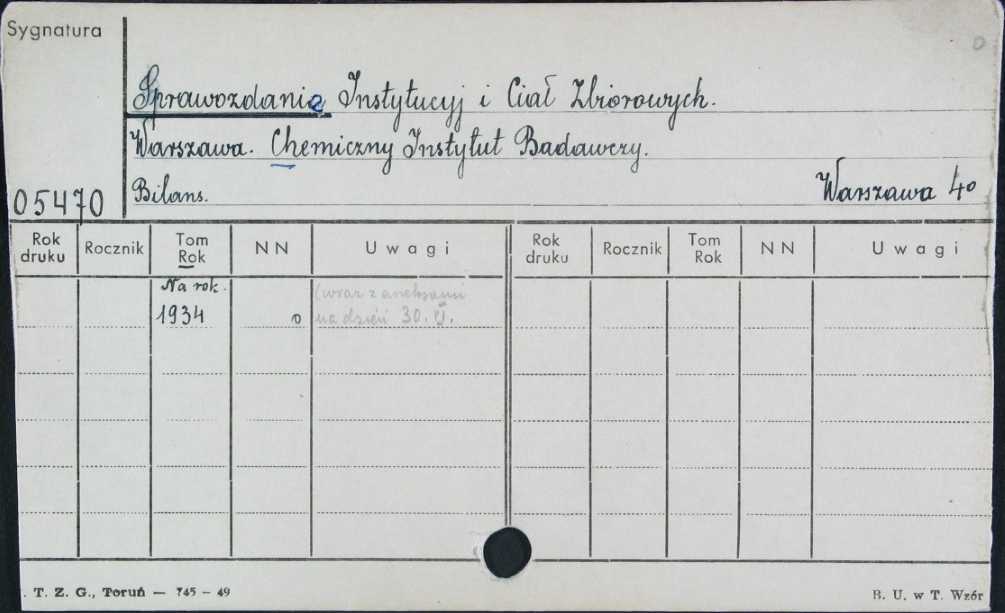 Sygnatura
0
Sprawozdania Instytucyj i Ciał Zbiorowych.
Warszawa. Chemiczny Instytut Badawczy.
05470 Bilans. Warszawa 4o
Rok druku Rocznik Tom Rok NN Uwagi Rok druku Rocznik Tom Rok NN Uwagi
Na rok. (wraz z aneksami
1934 0 na dzień 30.
T. Z. G., Toruń — 745 – 49 B. U. w T. Wzór